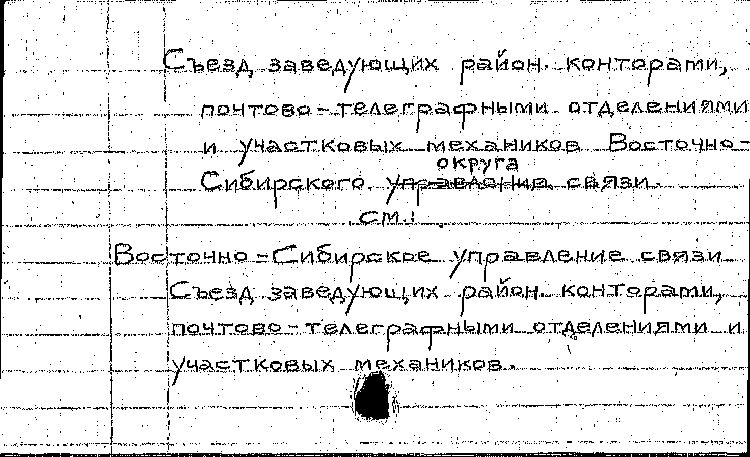 Съезд заведующих район. конторами,
почтово-телеграфными отделениями
и участковых механиков Восточно-
округа
Сибирского управления связи.
см.:
Восточно-Сибирское управление связи
Съезд заведующих район. конторами,
почтово-телеграфными отделениями и
участковых механиков.